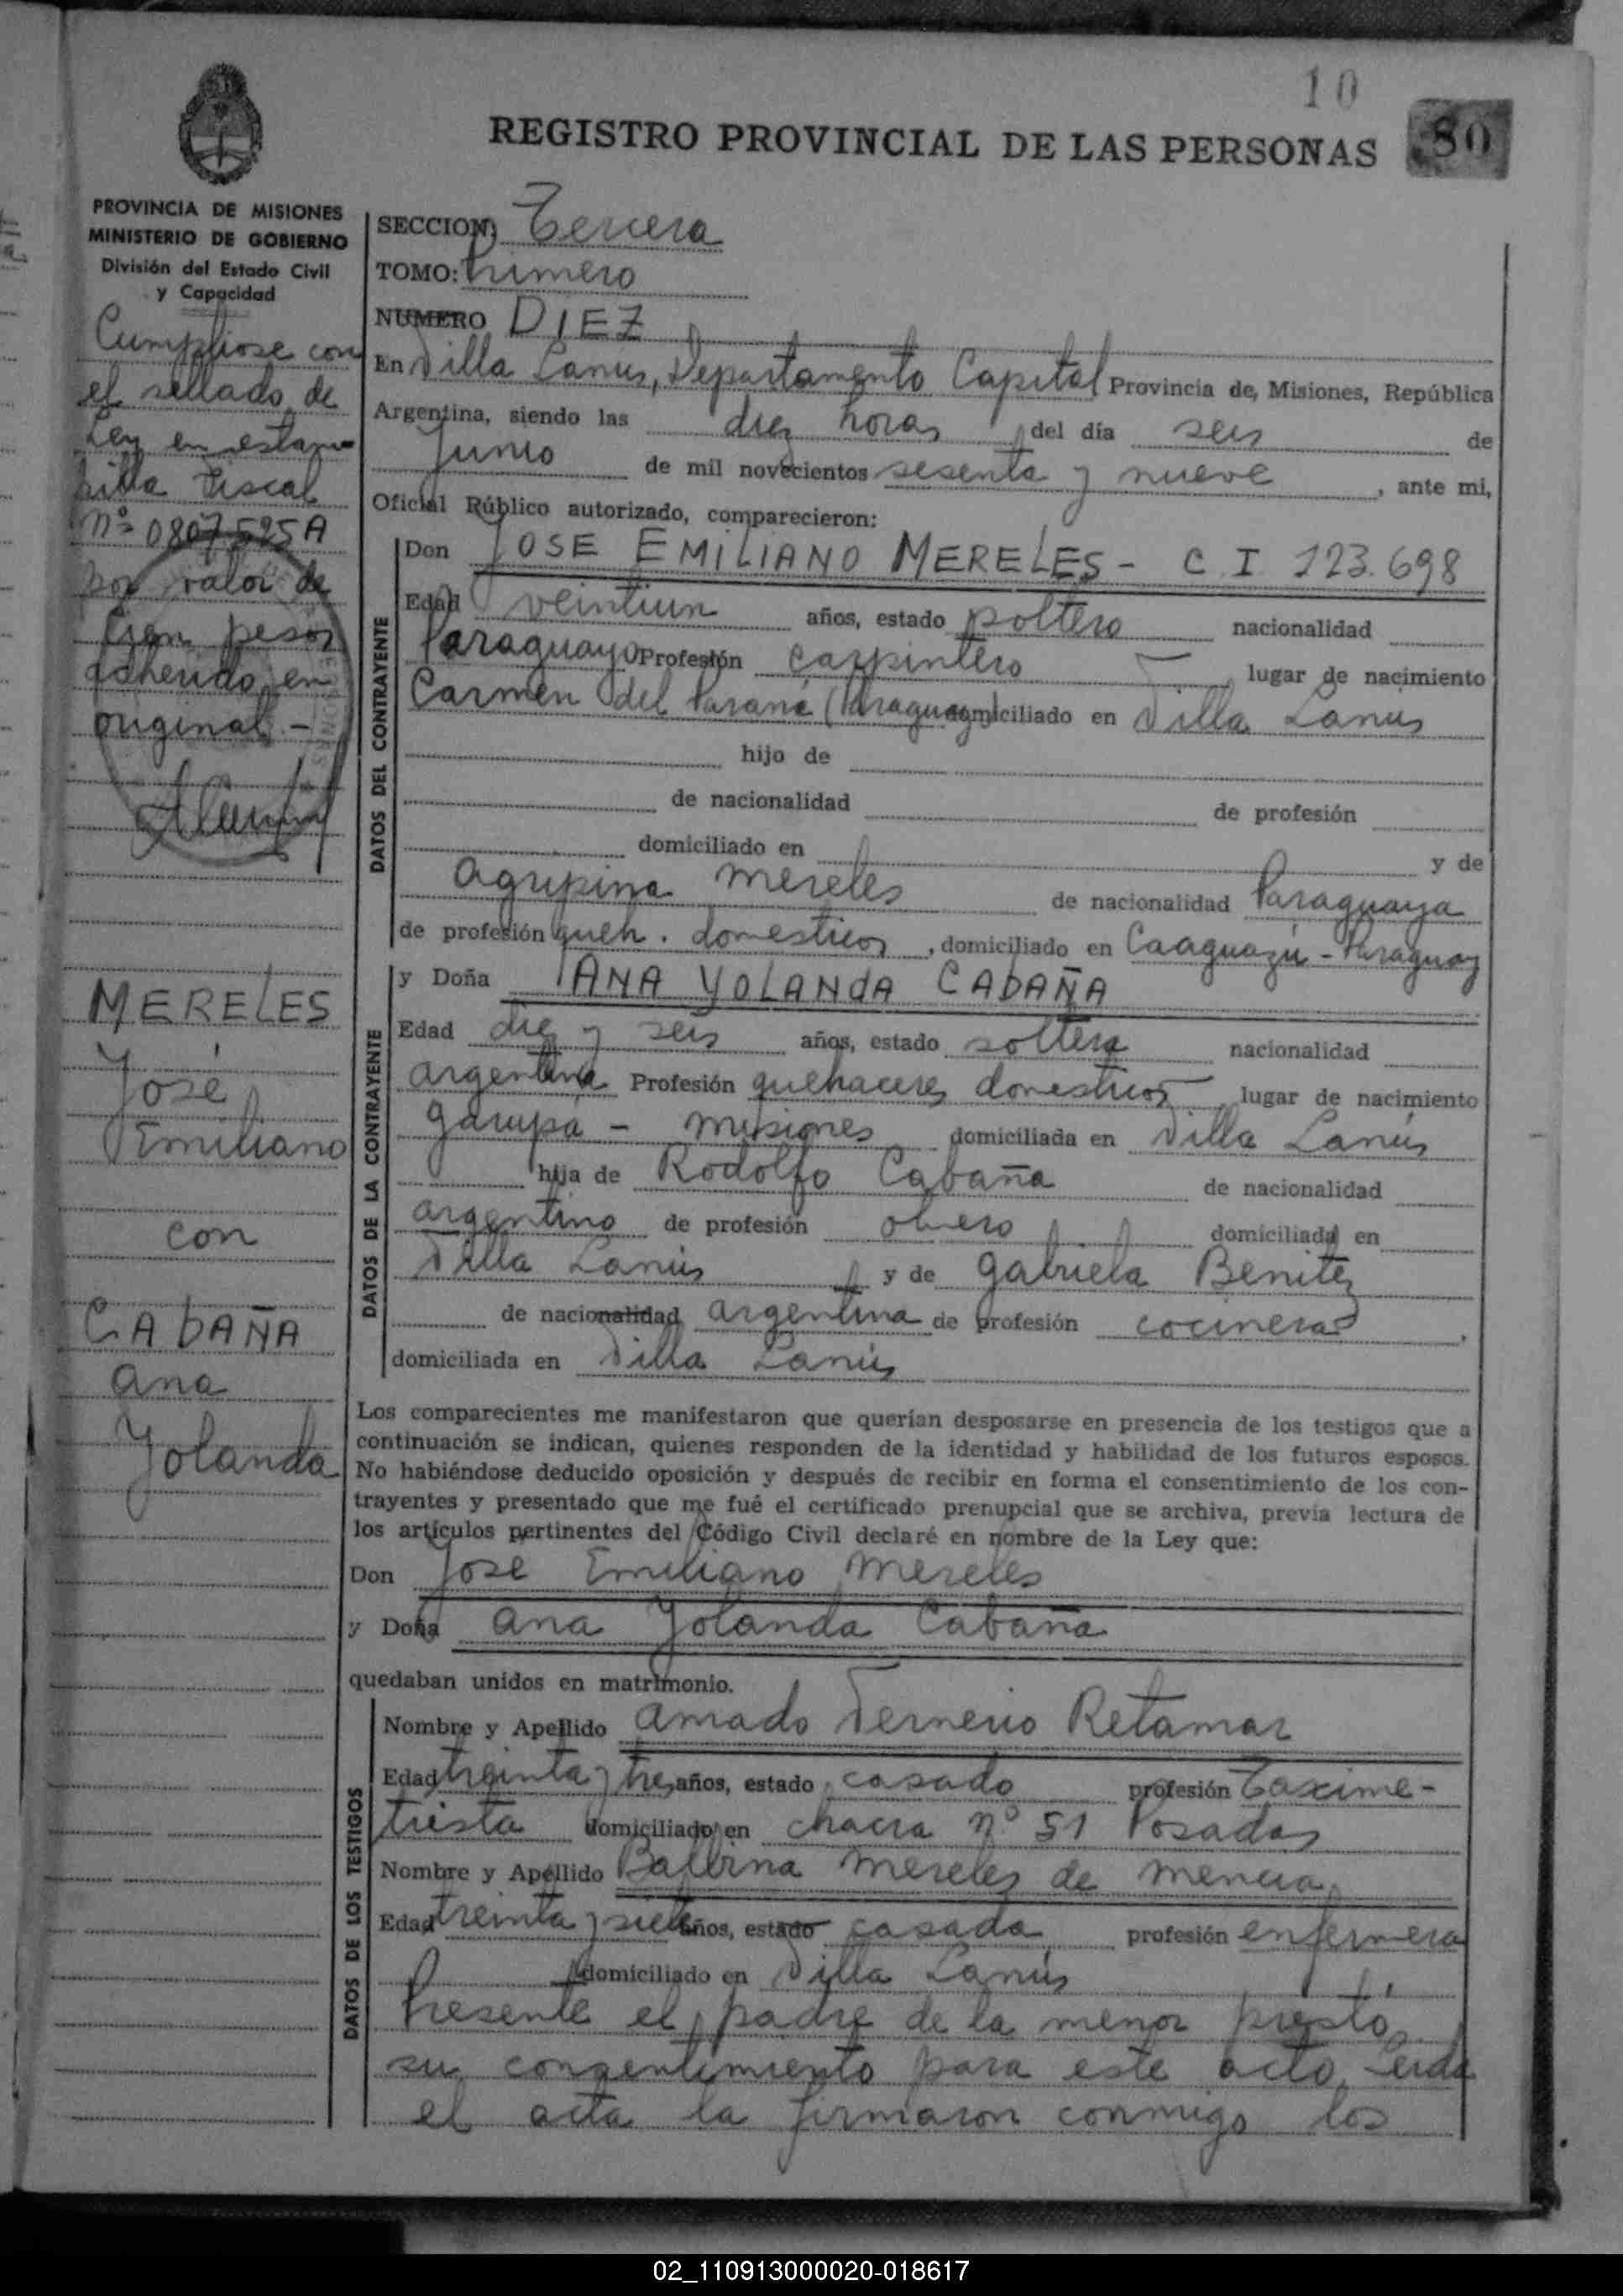 10
REGISTRO PROVINCIAL DE LAS PERSONAS
80
PROVINCIA DE MISIONES
MINISTERIO DE GOBIERNO
División del Estado Civil
y Capacidad
Cumpliose con
el sellado de
Ley en estam
pilla fiscal
Nº 0807525A
por valor de
Cien pesos
adherido en
original.-
MERELES
José
Emiliano
con
CABAÑA
Ana
Yolanda
SECCION) Tercera
TOMO: Primero
NUMERO DIEZ
En Villa Lanús, Departamento Capital Provincia de, Misiones, República
Argentina, siendo las diez horas del día seis de
Junio de mil novecientos sesenta y nueve, ante mi,
Oficial Público autorizado, comparecieron:
DATOS DEL CONTRAYENTE
Don JOSE EMILIANO MERELES - C I 123.698
Edad veintiun años, estado soltero nacionalidad
Paraguayo Profesión Carpintero lugar de nacimiento
Carmen del Paraná (Paraguay) domiciliado en Villa Lanús
hijo de
de nacionalidad de profesión
domiciliado en y de
Agripina Mereles de nacionalidad Paraguaya
de profesión queh. domesticos, domiciliado en Caaguazú - Paraguay
DATOS DE LA CONTRAYENTE
y Doña ANA YOLANDA CABAÑA
Edad diez y seis años, estado soltera nacionalidad
argentina Profesión quehaceres domesticos lugar de nacimiento
Garupá - Misiones domiciliada en Villa Lanús
hija de Rodolfo Cabaña de nacionalidad
argentino de profesión obrero domiciliada en
Villa Lanús y de Gabriela Benitez
de nacionalidad argentina de profesión cocinera,
domiciliada en Villa Lanús
Los comparecientes me manifestaron que querían desposarse en presencia de los testigos que a
continuación se indican, quienes responden de la identidad y habilidad de los futuros esposos.
No habiéndose deducido oposición y después de recibir en forma el consentimiento de los con-
trayentes y presentado que me fué el certificado prenupcial que se archiva, previa lectura de
los artículos pertinentes del Código Civil declaré en nombre de la Ley que:
Don José Emiliano Mereles
y Doña Ana Yolanda Cabaña
quedaban unidos en matrimonio.
DATOS DE LOS TESTIGOS
Nombre y Apellido Amado Vernerio Retamar
Edad treinta y tres años, estado casado profesión Taxime-
trista domiciliado en chacra nº 51 Posadas
Nombre y Apellido Balbina Mereles de Mencia
Edad treinta y siete años, estado casada profesión enfermera
domiciliado en Villa Lanús
Presente el padre de la menor prestó
su consentimiento para este acto, Leida
el acta la firmaron conmigo los
02_110913000020-018617